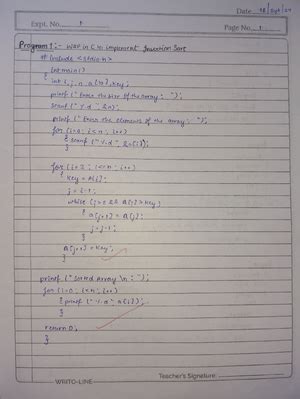 Date 18/Sept/24
Expt. No. 1
Page No. 1
Program 1:- WAP in C to implement Insertion Sort
# include <stdio.h>
int main()
{ int i, j, n, a[10], key;
printf ("Enter the size of the array : ");
scanf ("%d", &n);
printf ("Enter the elements of the array : ");
for (i=0; i<n; i++)
{ scanf ("%d", &a[i]);
}
for (i=2; i<=n; i++)
{ key = A[i];
j = i-1;
while (j>0 && A[j]>key)
{ a[j+1] = A[j];
j=j-1;
}
A[j+1] = key;
}
printf ("Sorted Array \n : ");
for (i=0; i<n; i++)
{ printf ("%d", a[i]);
}
return 0;
}
Teacher's Signature
WRITO-LINE